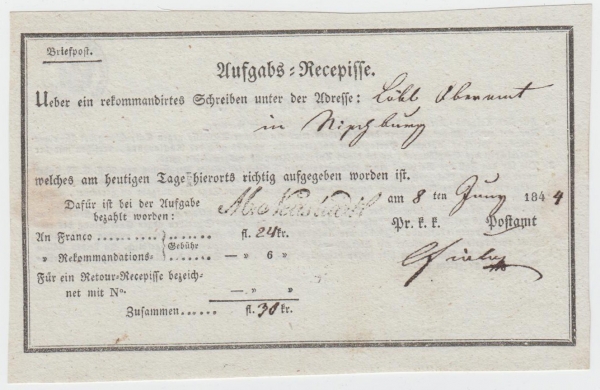 Briefpost.
Aufgabs=Recepisse.
Ueber ein rekommandirtes Schreiben unter der Adresse: Löbl Oberamt
in
welches am heutigen Tage hierorts richtig aufgegeben worden ist.
Dafür ist bei der Aufgabe
bezahlt worden:
am 8 ten Juny 1844
Pr. k. k. Postamt
An Franco .......... } ....... fl. 24 kr.
Gebühr
„ Rekommandations= } ....... — „ 6 „
Für ein Retour=Recepisse bezeich=
net mit No. — „ „
Zusammen ...... fl. 30 kr.